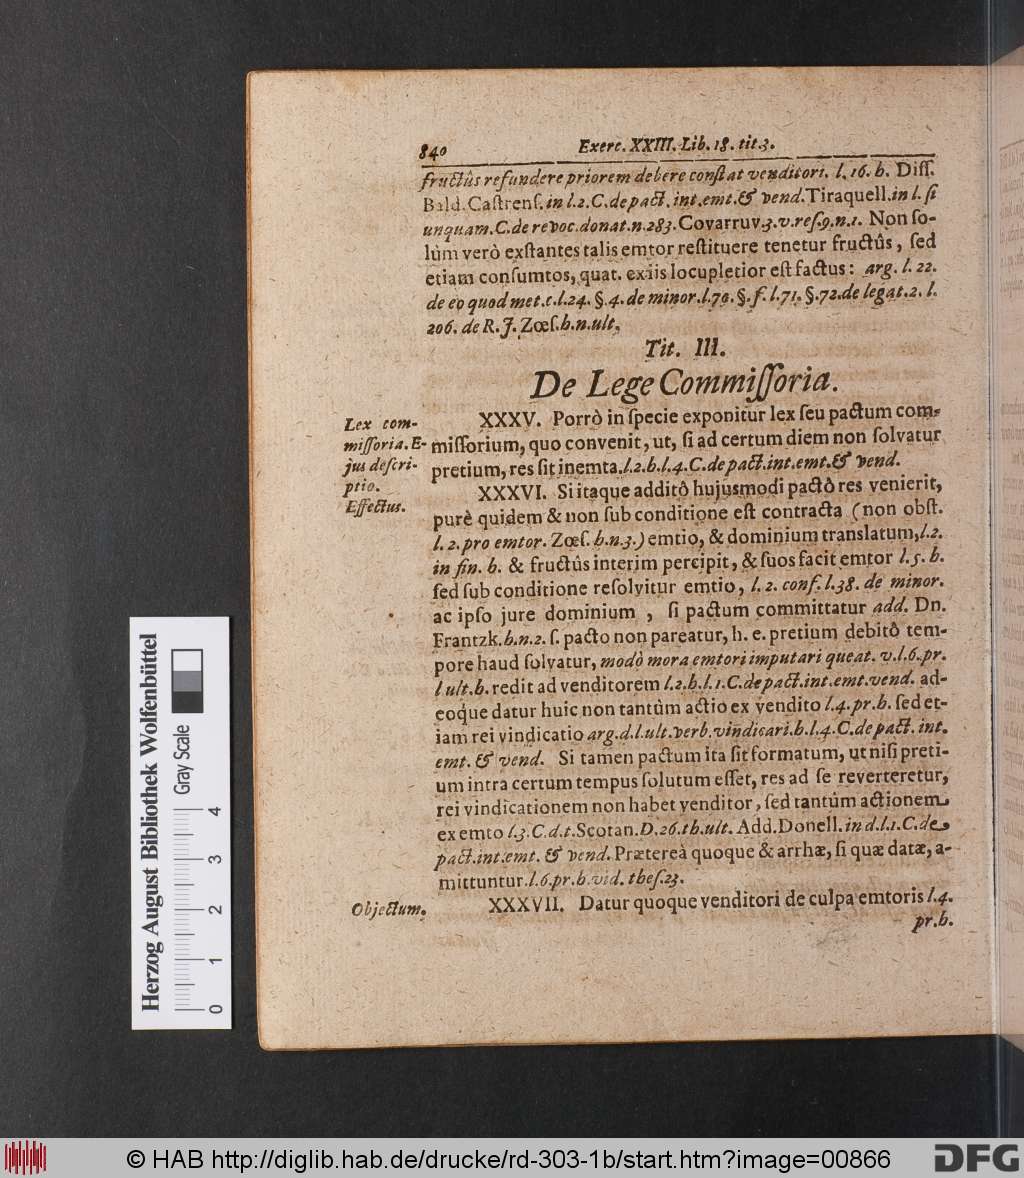 840 Exerc. XXIII. Lib. 18. tit. 3.
fructûs refundere priorem debere constat venditori. l. 16. h. Diss.
Bald. Castrens. in l. 2. C. de pact. int. emt. & vend. Tiraquell. in l. si
unquam. C. de revoc. donat. n. 283. Covarruv. 3. v. res. 9. n. 1. Non so-
lùm verò exstantes talis emtor restituere tenetur fructûs, sed
etiam consumtos, quat. ex iis locupletior est factus: arg. l. 22.
de eo quod met. c. l. 24. §. 4. de minor. l. 70. §. f. l. 71. §. 72. de legat. 2. l.
206. de R. J. Zœs. h. n. ult.
Tit. III.
De Lege Commissoria.
Lex com-
missoria. E-
jus descri-
ptio.
Effectus.
XXXV. Porrò in specie exponitur lex seu pactum com-
missorium, quo convenit, ut, si ad certum diem non solvatur
pretium, res sit inemta. l. 2. h. l. 4. C. de pact. int. emt. & vend.
XXXVI. Si itaque additô hujusmodi pactô res venierit,
purè quidem & non sub conditione est contracta (non obst.
l. 2. pro emtor. Zœs. h. n. 3.) emtio, & dominium translatum, l. 2.
in fin. h. & fructûs interim percipit, & suos facit emtor l. 5. h.
sed sub conditione resolvitur emtio, l. 2. conf. l. 38. de minor.
ac ipso jure dominium, si pactum committatur add. Dn.
Frantzk. h. n. 2. s. pacto non pareatur, h. e. pretium debitô tem-
pore haud solvatur, modò mora emtori imputari queat. v. l. 6. pr.
l ult. h. redit ad venditorem l. 2. h. l. 1. C. de pact. int. emt. vend. ad-
eoque datur huic non tantùm actio ex vendito l. 4. pr. h. sed et-
iam rei vindicatio arg. d. l. ult. verb. vindicari. h. l. 4. C. de pact. int.
emt. & vend. Si tamen pactum ita sit formatum, ut nisi preti-
um intra certum tempus solutum esset, res ad se reverteretur,
rei vindicationem non habet venditor, sed tantùm actionem
ex emto l. 3. C. d. t. Scotan. D. 26. th. ult. Add. Donell. in d. l. 1. C. de
pact. int. emt. & vend. Prætereà quoque & arrhæ, si quæ datæ, a-
mittuntur. l. 6. pr. h. vid. thes. 23.
Objectum.
XXXVII. Datur quoque venditori de culpa emtoris l. 4.
pr. h.
Herzog August Bibliothek Wolfenbüttel
Gray Scale
0 1 2 3 4
© HAB http://diglib.hab.de/drucke/rd-303-1b/start.htm?image=00866
DFG